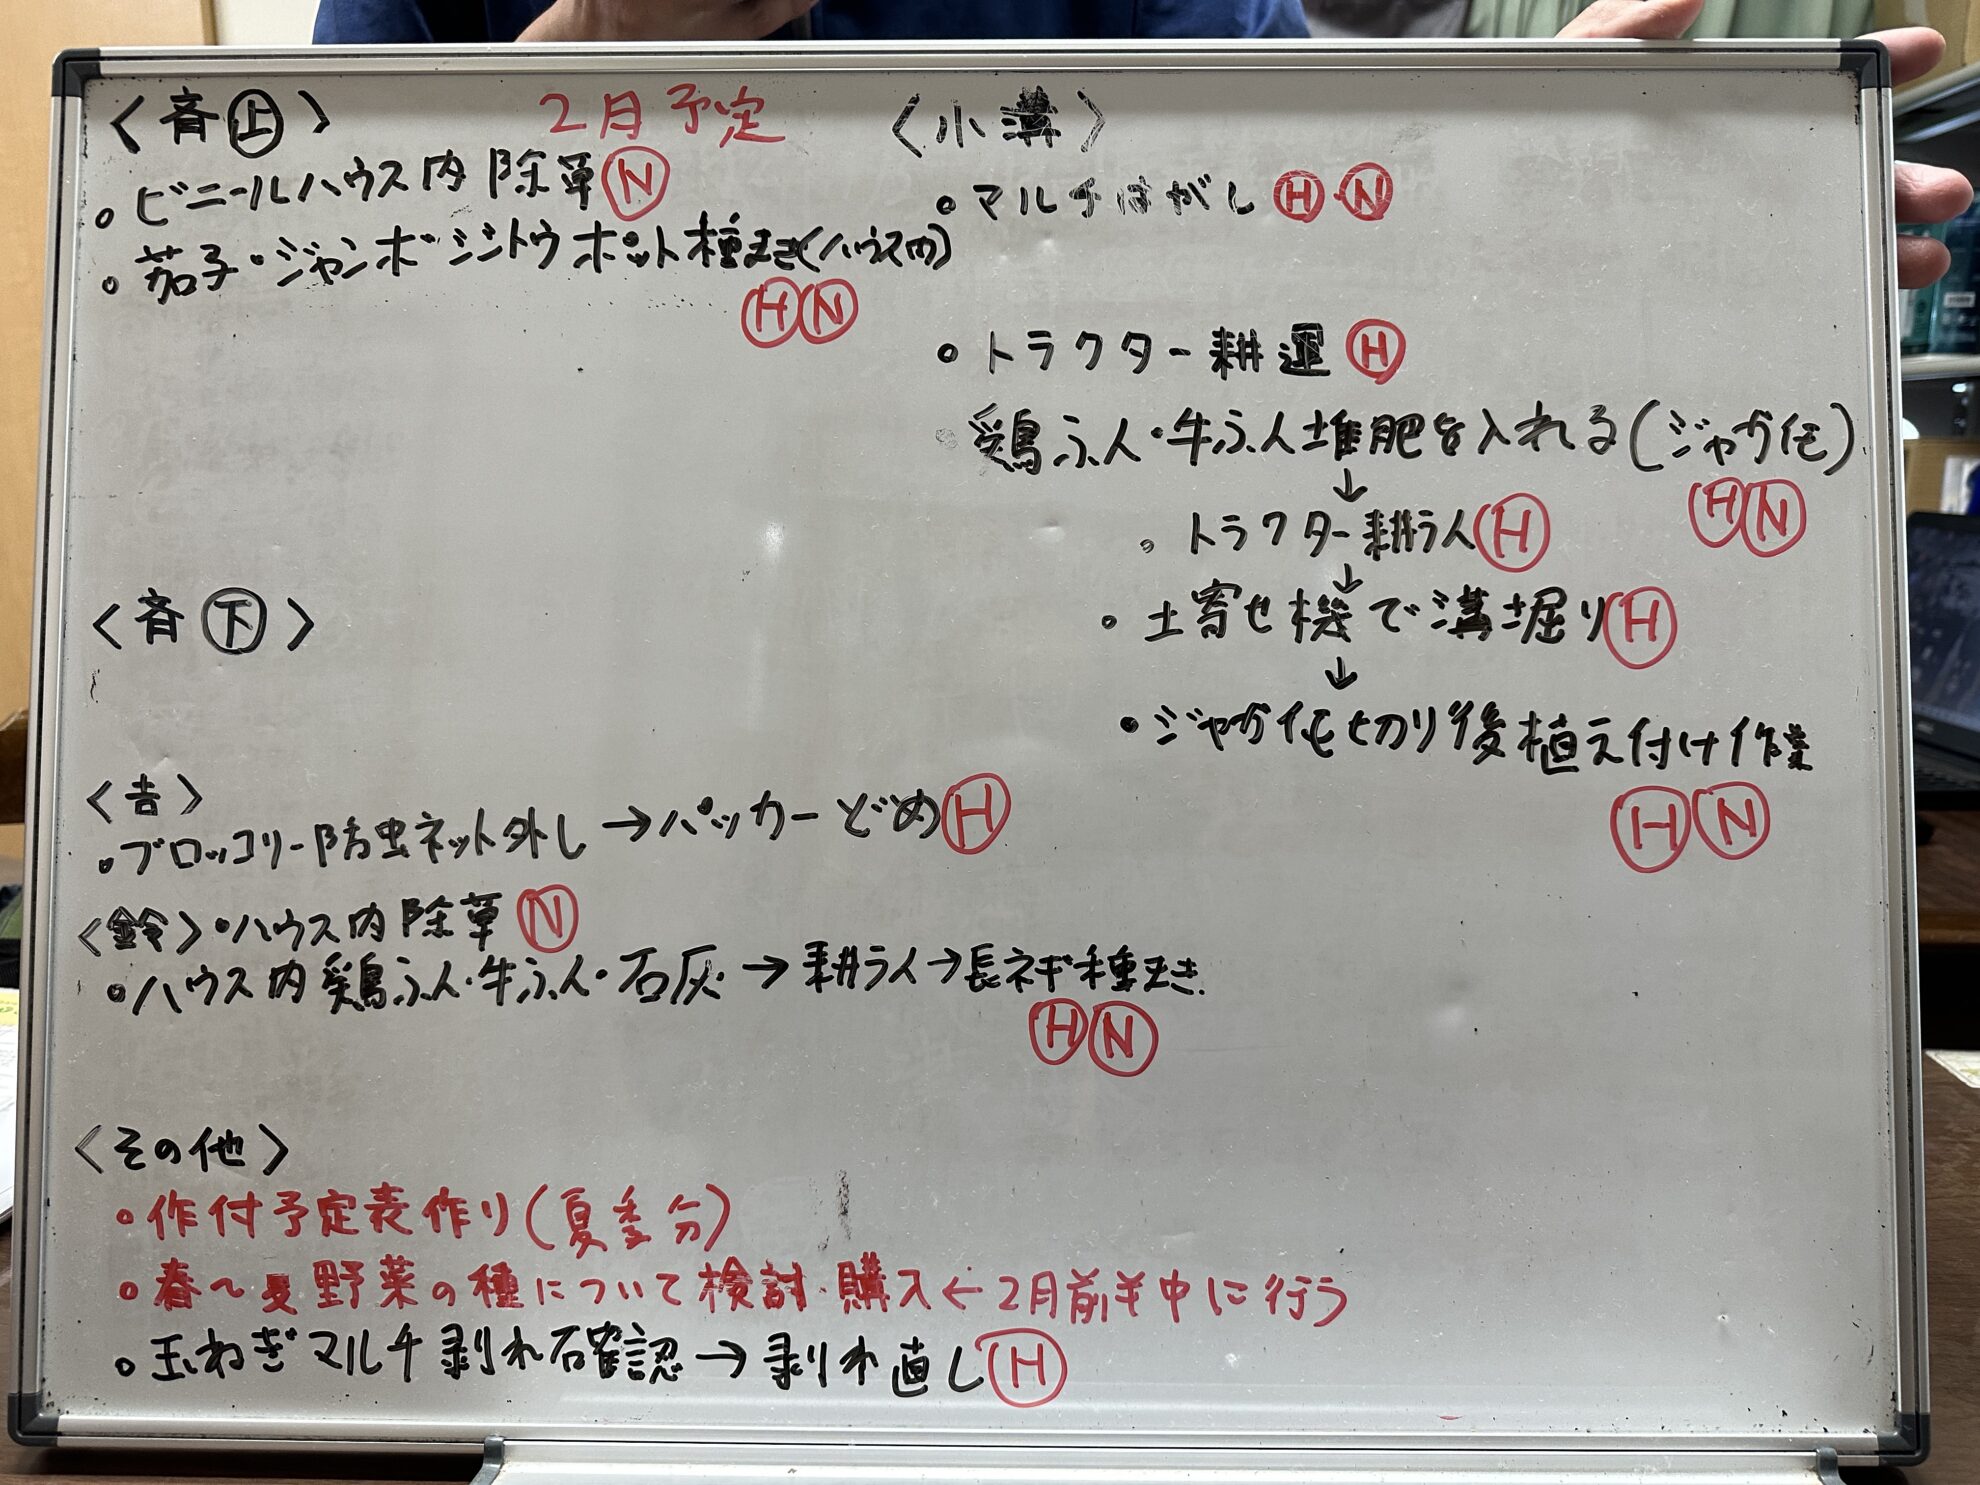 2月予定
〈斉㊤〉
。ビニールハウス内除草Ⓝ
。茄子・ジャンボシシトウポット種まき(ハウス内)
ⒽⓃ
〈斉㊦〉
〈吉〉
。ブロッコリー防虫ネット外し→パッカーどめⒽ
〈鈴〉・ハウス内除草Ⓝ
。ハウス内鶏ふん・牛ふん・石灰→耕うん→長ネギ種まき
ⒽⓃ
〈その他〉
。作付予定表作り(夏季分)
。春〜夏野菜の種について検討・購入←2月前半中に行う
。玉ねぎマルチ剥れ確認→剥れ直しⒽ
〈小溝〉
。マルチはがしⒽ・Ⓝ
。トラクター耕運Ⓗ
。鶏ふん・牛ふん堆肥を入れる(ジャガ芋)
ⒽⓃ
↓
。トラクター耕うんⒽ
↓
。土寄せ機で溝堀りⒽ
↓
・ジャガ芋切り後植え付け作業
ⒽⓃ